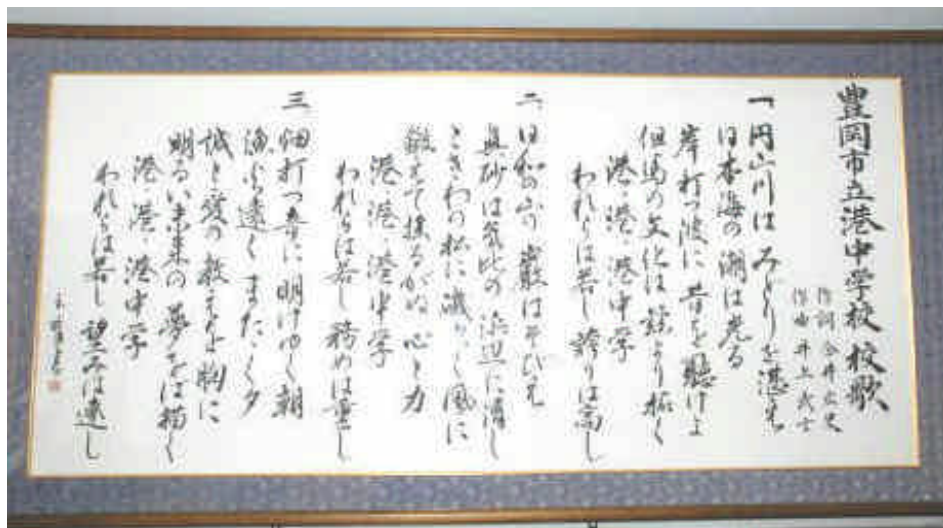 豊岡市立港中学校 校歌
作詞 今井
作曲 井上武士
一 円山川は みどりを湛え
日本海の潮は光る
岸打つ波に昔を聴けよ
但馬の文化は 拓く
港 港 港中学
われらは若し 誇りは高し
二 日和の山の巌はそびえ
真砂は気比の浜辺に清し
ときわの松に磯ふく風に
鍛えて揺るがぬ 心と力
港 港 港中学
われらは若し 務めは重し
三 畑打つ音に 明けゆく朝
漁り火遠く またたく夕
誠と愛の教えを胸に
明るい未来の夢をば描く
港 港 港中学
われらは若し 望みは遠し